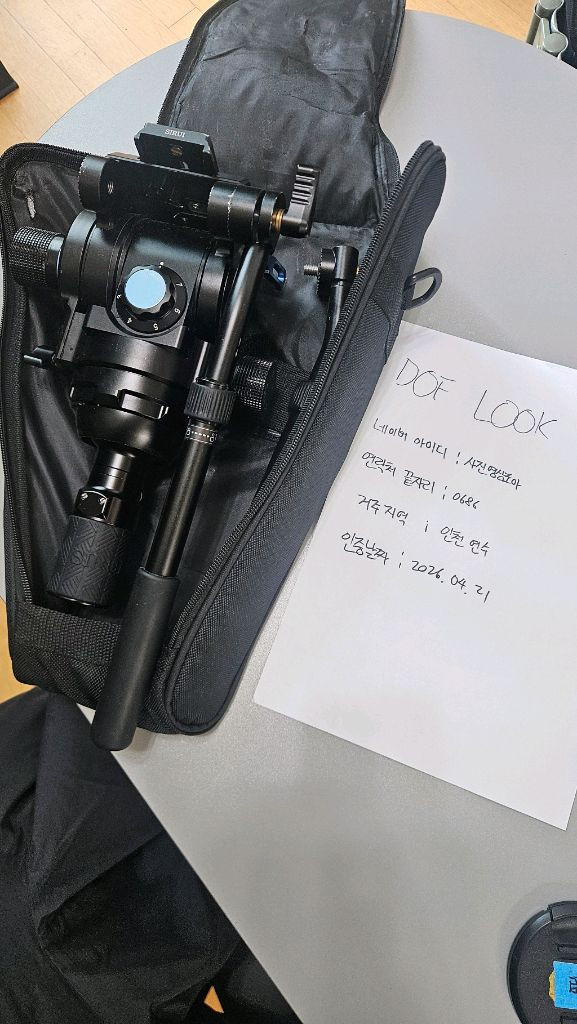 SIRUI
DOF LOOK
네이버 아이디 : 사진영상조아
연락처 끝자리 : 0686
거주 지역 : 인천 연수
인증날짜 : 2026. 04. 21